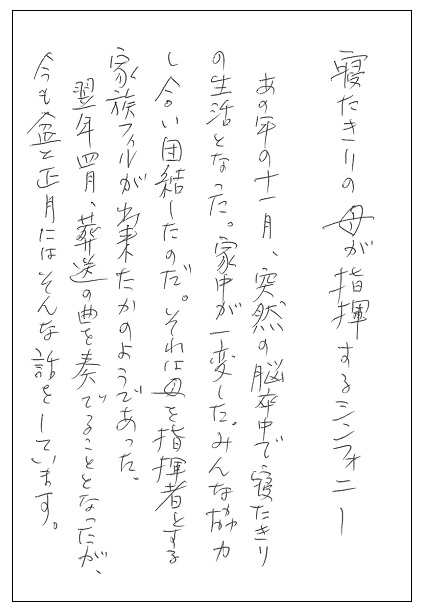 寝たきりの母が指揮するシンフォニー
あの年の十一月、突然の脳卒中で寝たきり
の生活となった。家中が一変した。みんな協力
し合い団結したのだ。それは母を指揮者とする
家族フィルが出来たかのようであった。
翌年四月、葬送の曲を奏でることとなったが、
今も盆と正月にはそんな話をしています。